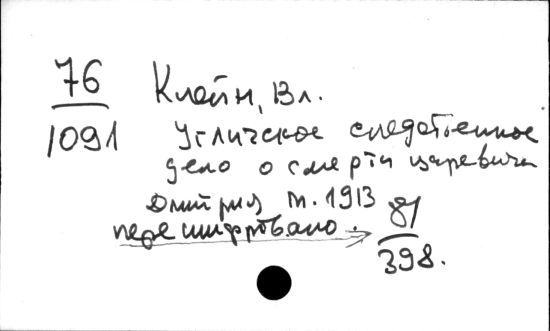 76 Клейн, Вл.
1091 Угличское следственное
дело о смерти царевича
Дмитрия М. 1913 81
перешифровано. 398.